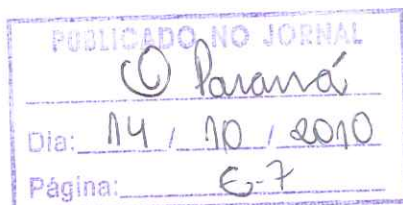 PUBLICADO NO JORNAL
O Paraná
Dia: 14 / 10 / 2010
Página: C-7